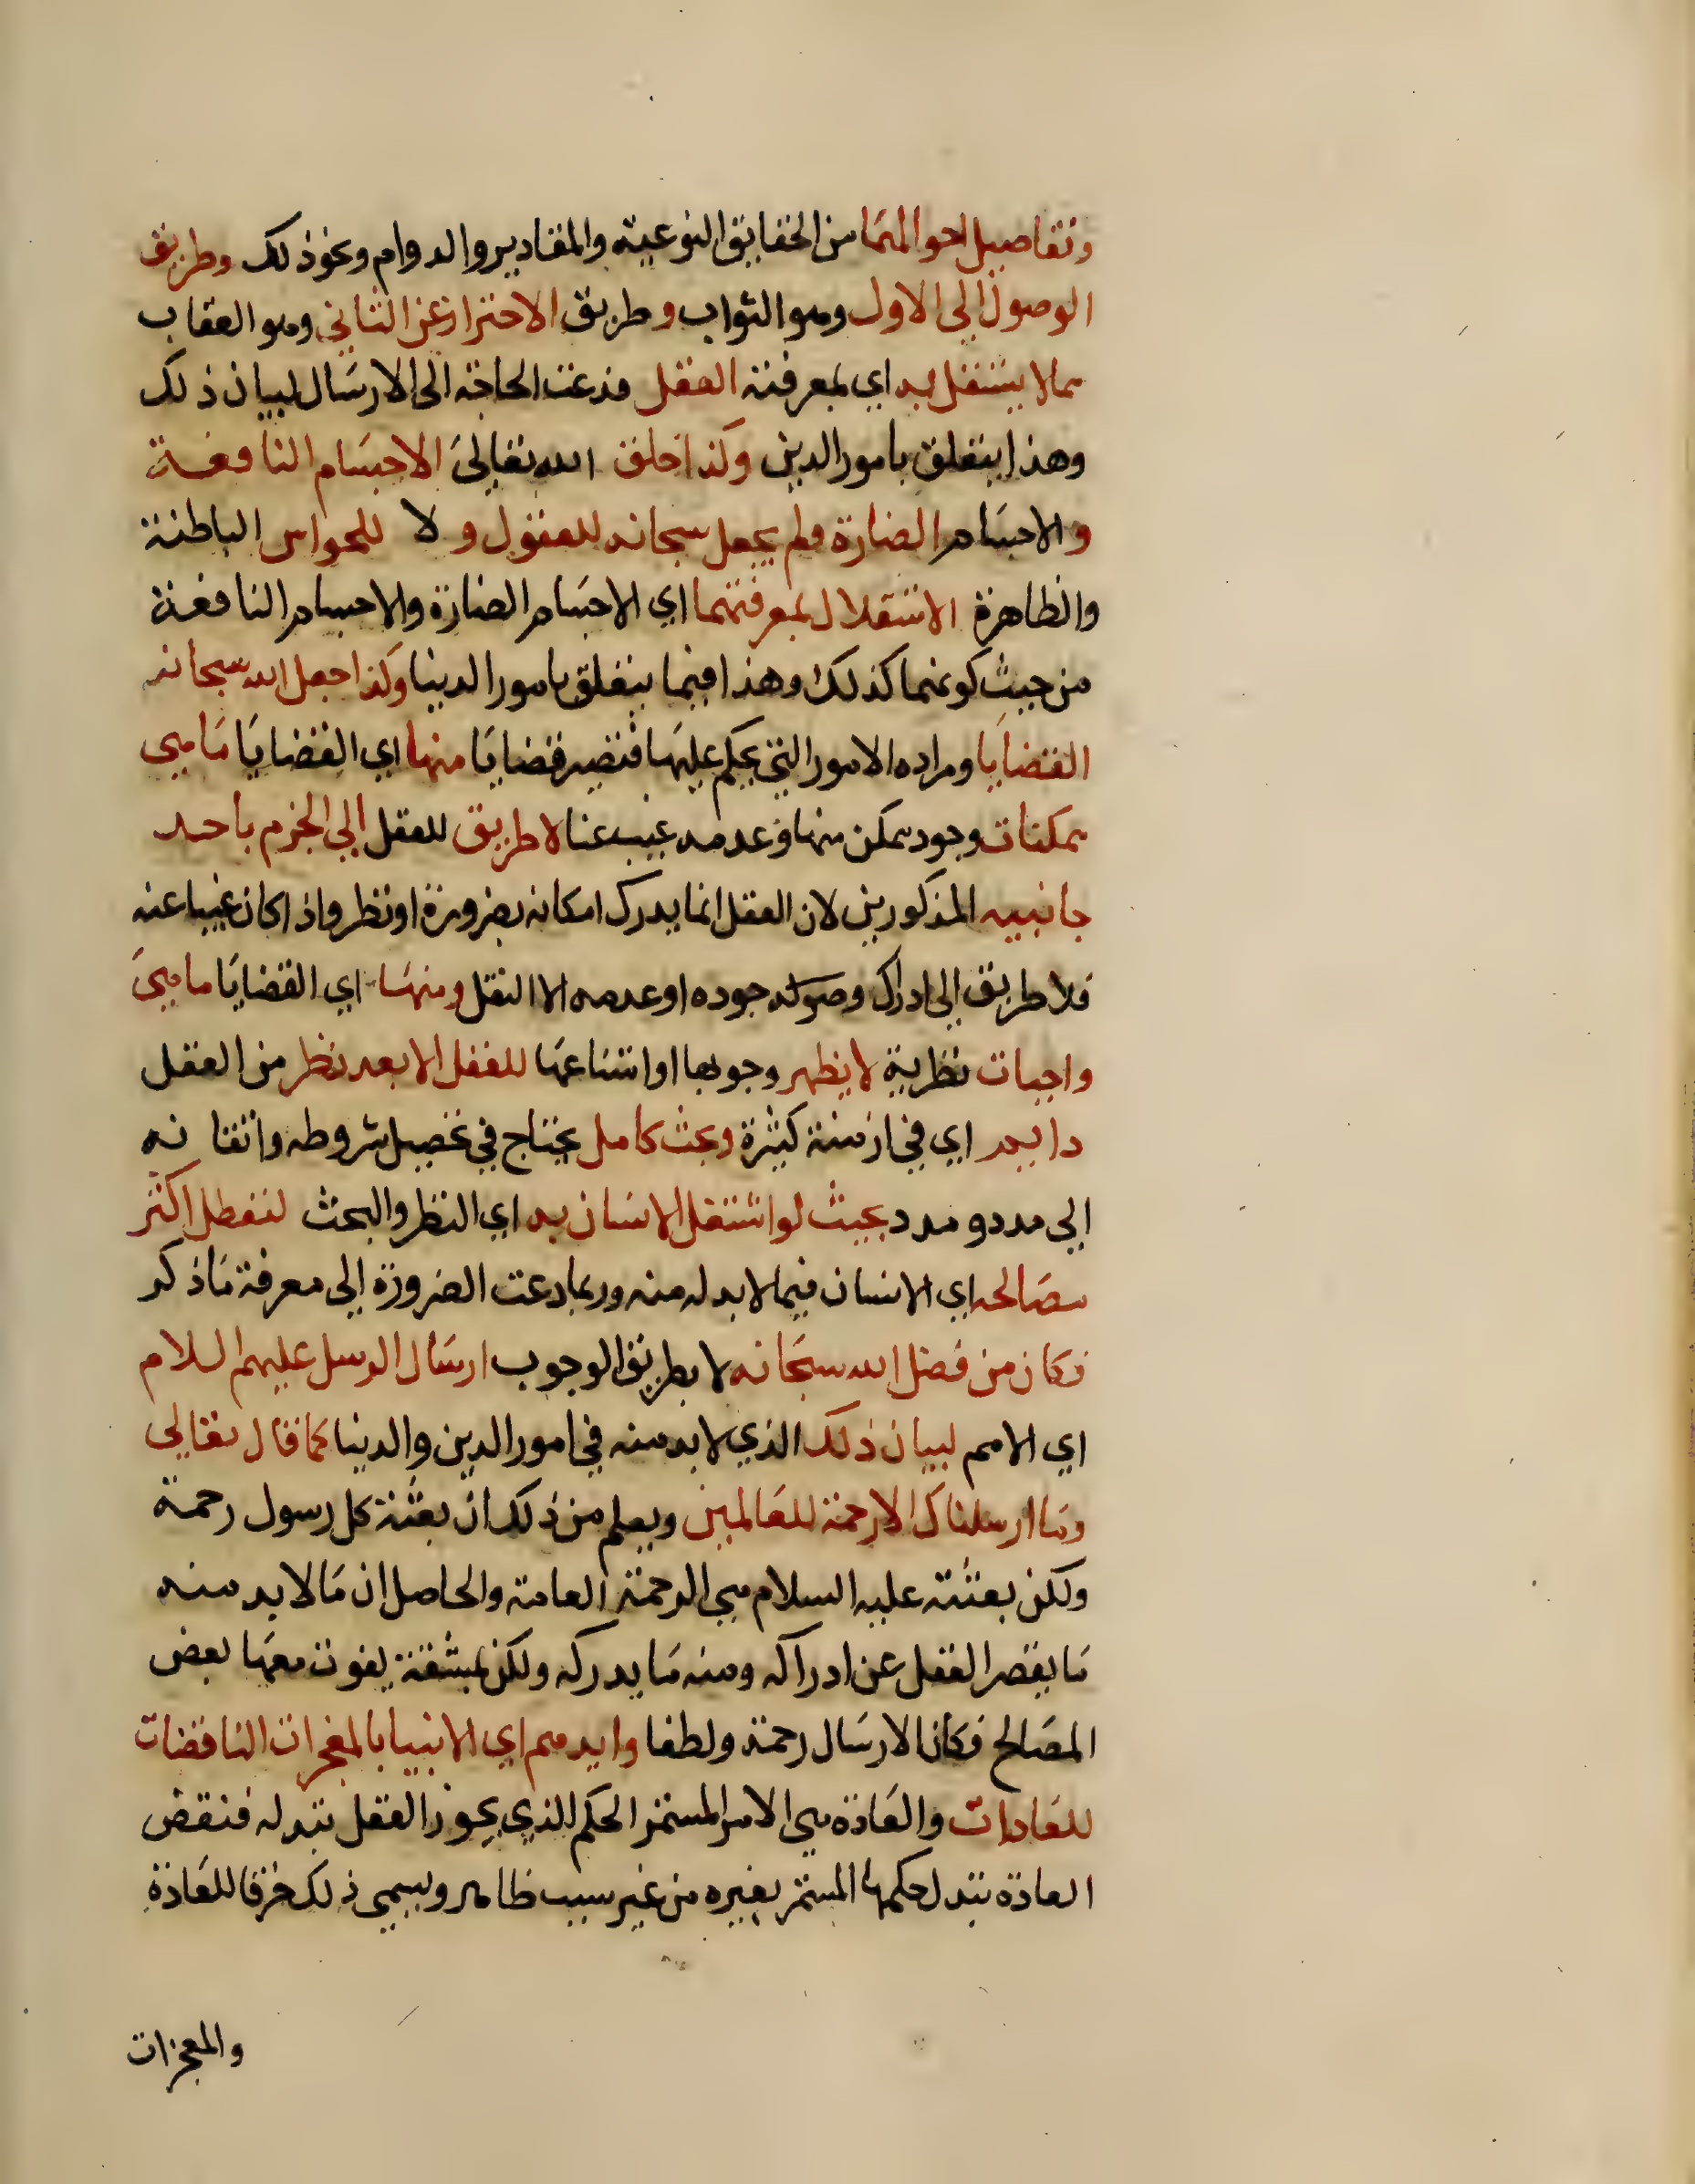 وتفاصيل احوالهما من الحقايق النوعية والمقادير والدوام ونحو ذلك وطريق
الوصول الى الاول وهو الثواب وطريق الاحتراز عن الثاني وهو العقاب
مما لا يستقل به اي بمعرفته العقل فدعت الحاجة الى الارسال لبيان ذلك
وهذا يتعلق بامور الدين وكذا خلق الله تعالى الاجسام النافعة
والاجسام الضارة ولم يجعل سبحانه للعقول ولا للحواس الباطنة
والظاهرة الاستقلال بمعرفتهما اي الاجسام الضارة والاجسام النافعة
من حيث كونهما كذلك وهذا فيما يتعلق بامور الدنيا وكذا جعل الله سبحانه
القضايا ومراده الامور التي يحكم عليها فتصير قضايا منها اي القضايا ما هي
ممكنات وجود ممكن منها وعدمه غيب عنا لا طريق للعقل الي الجزم باحد
جانبيه المذكورين لان العقل انما يدرك امكانه بضرورة او نظر واذا كان غيبا عنه
فلا طريق الى ادراك وجوده او عدمه الا النقل ومنها اي القضايا ما هي
واجبات نظرية لا يظهر وجوبها او امتناعها للعقل الا بعد نظر من العقل
دايم اي في ازمنة كثيرة وبحث كامل يحتاج في تحصيل شروطه واتقانه
الى مدد ومدد بحيث لو اشتغل الانسان به اي النظر والبحث لتعطل اكثر
مصالحه اي الانسان فيما لا بد له منه وربما دعت الضرورة الى معرفة ما ذكر
فكان من فضل الله سبحانه لا بطريق الوجوب ارسال الرسل عليهم السلام
اي الامم لبيان ذلك الذي لا بد منه في امور الدين والدنيا كما قال تعالى
وما ارسلناك الا رحمة للعالمين ويعلم من ذلك ان بعثة كل رسول رحمة
ولكن بعثته عليه السلام هي الرحمة العامة والحاصل ان ما لا بد منه
ما يقصر العقل عن ادراكه ومنه ما يدركه ولكن بمشقة يفوت معها بعض
المصالح فكان الارسال رحمة ولطفا وايدهم اي الانبيا بالمعجزات الناقضات
للعادات والعادة هي الامر المستمر الحكم الذي يجوز العقل تبدله فنقض
العادة تبدل حكمها المستمر بغيره من غير سبب ظاهر ويسمى ذلك خرقا للعادة
والمعجزات